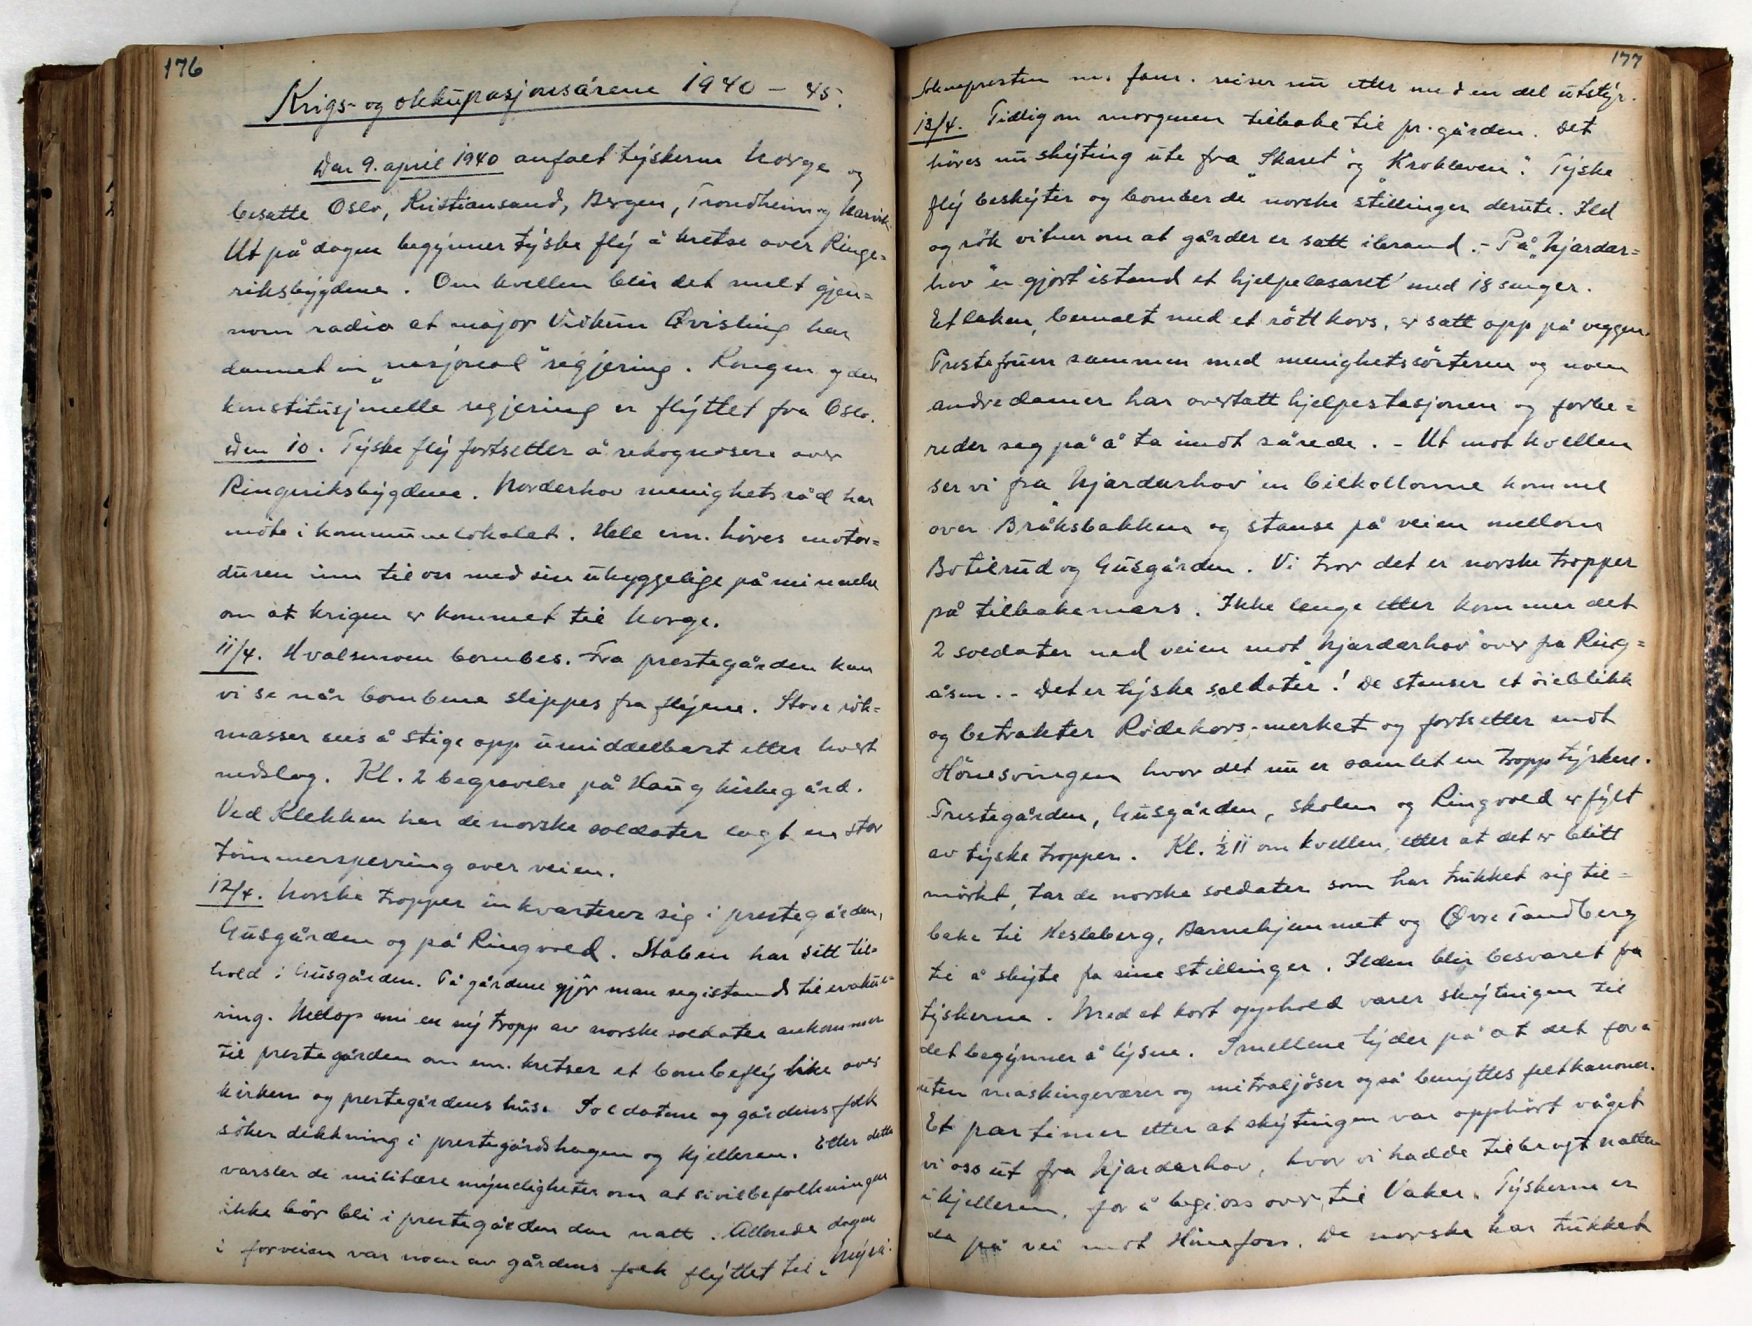 176
Krigs- og okkupasjonsårene 1940 – 45.
Den 9. april 1940 anfalt tyskerne Norge og
besatte Oslo, Kristiansand, Bergen, Trondheim og Narvik.
Ut på dagen begynner tyske fly å kretse over Ringe=
riksbygdene. Om kvellen blir det meldt gjen=
nom radio at major Vidkun Qvisling har
dannet en „nasjonal" regjering. Kongen og den
konstitusjonelle regjering er flyttet fra Oslo.
Den 10. Tyske fly fortsetter å rekognosere over
Ringeriksbygdene. Norderhov menighetsråd har
möte i kommunelokalet. Hele em. höres motor=
duren inn til oss med sin uhyggelige påminnelse
om at krigen er kommet til Norge.
11/4. Hvalsmoen bombes. Fra prestegården kan
vi se når bombene slippes fra flyene. Store rök=
masser sees å stige opp umiddelbart etter hvert
nedslag. Kl. 2 begravelse på Haug kirkegård.
Ved Klekken har de norske soldater lagt en stor
tömmersperring over veien.
12/4. Norske tropper innkvarterer sig i prestegården,
Gusgården og på Ringvold. Staben har sitt til=
hold i Gusgården. På gårdene gjör man seg istand til evakue=
ring. Netop som en ny tropp av norske soldater ankommer
til prestegården om em. kretser et bombefly like over
kirken og prestegårdens hus. Soldatene og gårdens folk
söker dekkning i prestegårdshagen og kjelleren. Etter dette
varsler de militære myndigheter om at sivilbefolkningen
ikke bör bli i prestegården den natt. Allerede dagen
i forveien var noen av gårdens folk flyttet til
177
Soknepresten m. fam. reiser nu etter med en del utstyr.
13/4. Tidlig om morgenen tilbake til pr.gården. Det
höres nu skyting ute fra „Skaret" og „Krokleven". Tyske
fly beskyter og bomber de norske stillinger derute. Ild
og rök vitner om at gårder er satt i brand. – På „Njardar=
hov" er gjort istand et hjelpelasarett med 18 senger.
Et laken, bemalt med et rött kors, er satt opp på veggen.
Prestefruen sammen med menighetssösteren og noen
andre damer har overtatt hjelpestasjonen og forbe=
reder seg på å ta imot sårede. – Ut mot kvellen
ser vi fra Njardarhov en bilkolonne komme
over Bråksbakken og stanse på veien mellom
Botilrud og Gusgården. Vi tror det er norske tropper
på tilbakemars. Ikke lenge etter kommer det
2 soldater ned veien mot „Njardarhov" over fra Ring=
åsen. – Det er tyske soldater! De stanser et öieblikk
og betrakter Rödekors-merket og fortsetter mot
Hönesvingen hvor det nu er samlet en tropp tyskere.
Prestegården, Gusgården, skolen og Ringvold er fylt
av tyske tropper. Kl. ½ 11 om kvellen, etter at det er blitt
mörkt, tar de norske soldater som har trukket sig til=
bake til Hesleberg, Barnehjemmet og Øvre Tandberg
til å skyte fra sine stillinger. Ilden blir besvaret fra
tyskerne. Med et kort opphold varer skytningen til
det begynner å lysne. Smellene tyder på at det foru=
uten maskingeværer og mitraljöser også benyttes feltkanoner.
Et par timer etter at skytningen var opphört våget
vi oss ut fra Njardarhov, hvor vi hadde tilbragt natten
i kjelleren, for å begi oss over til Vaker. Tyskerne er
da på vei mot Hönefoss. De norske har trukket